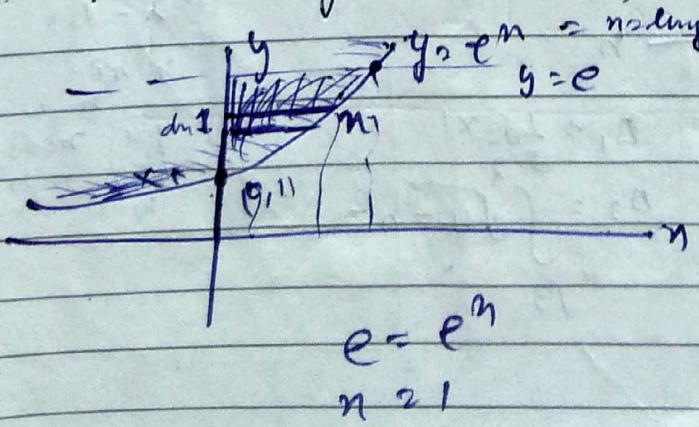 y y = e^x = x = lny
y = e
x1
(0,1)
x
e = e^x
x = 1